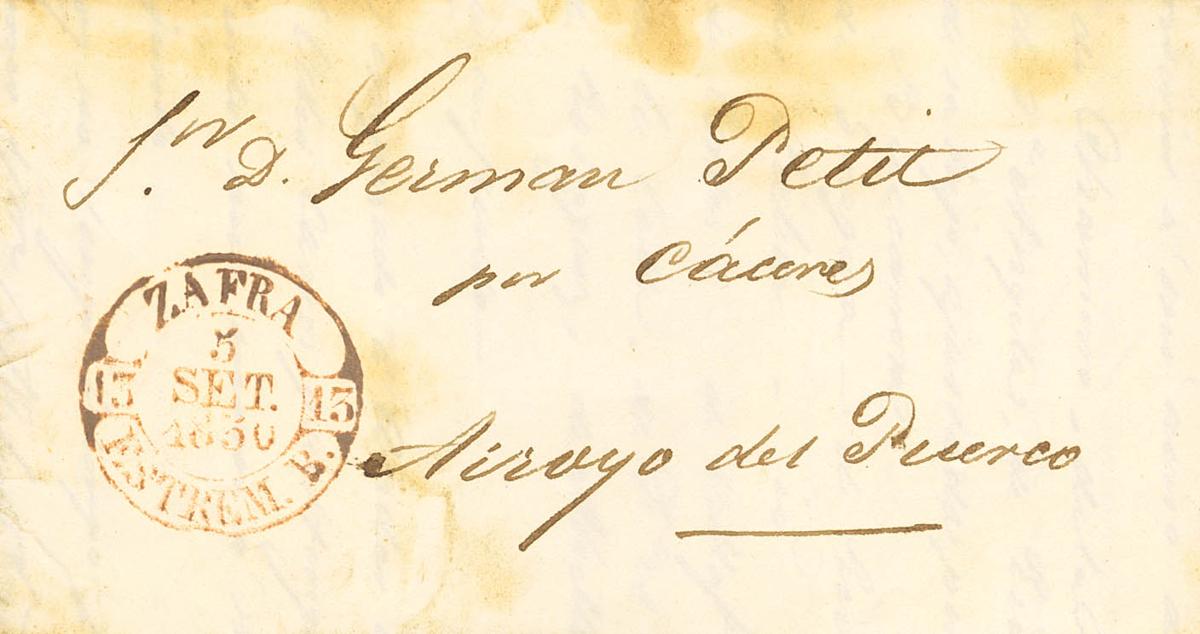 Sor D. German Petit
por Cáceres
Arroyo del Puerco
ZAFRA
5
SET.
1850
13 13
ESTREM. B.